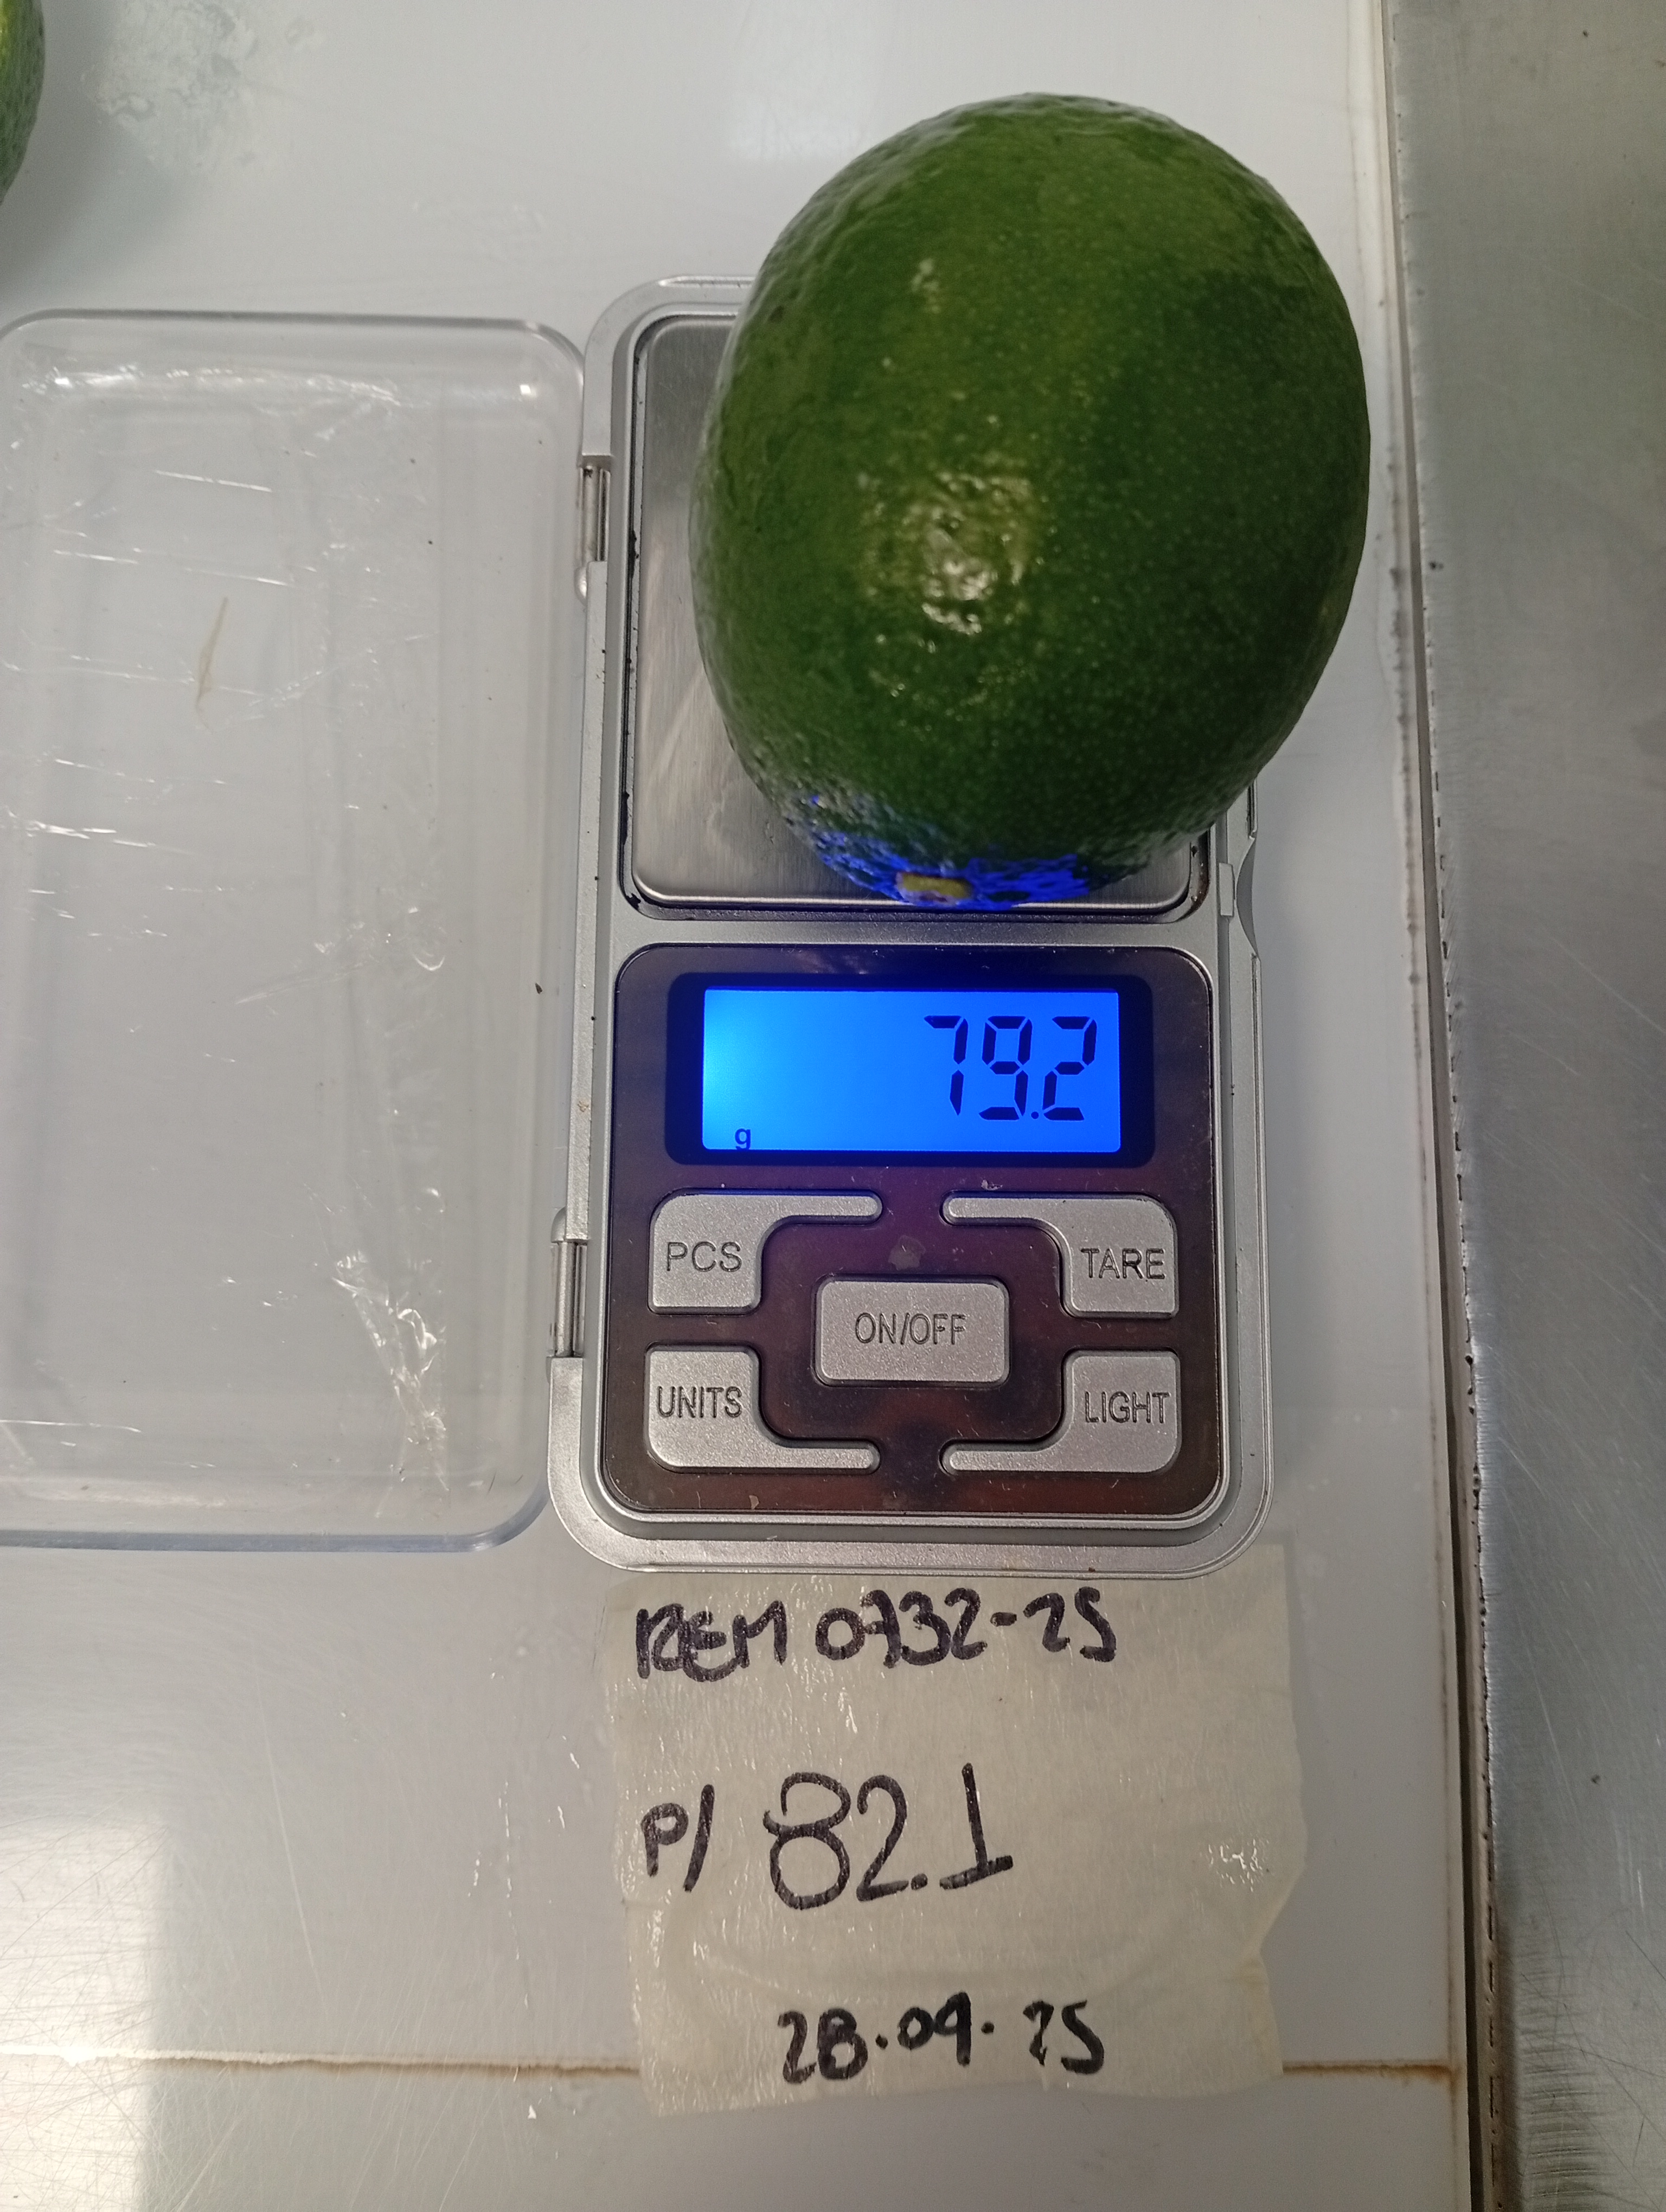 79.2
g
PCS
TARE
ON/OFF
UNITS
LIGHT
REM 0732-25
P/ 82.1
28.09.25